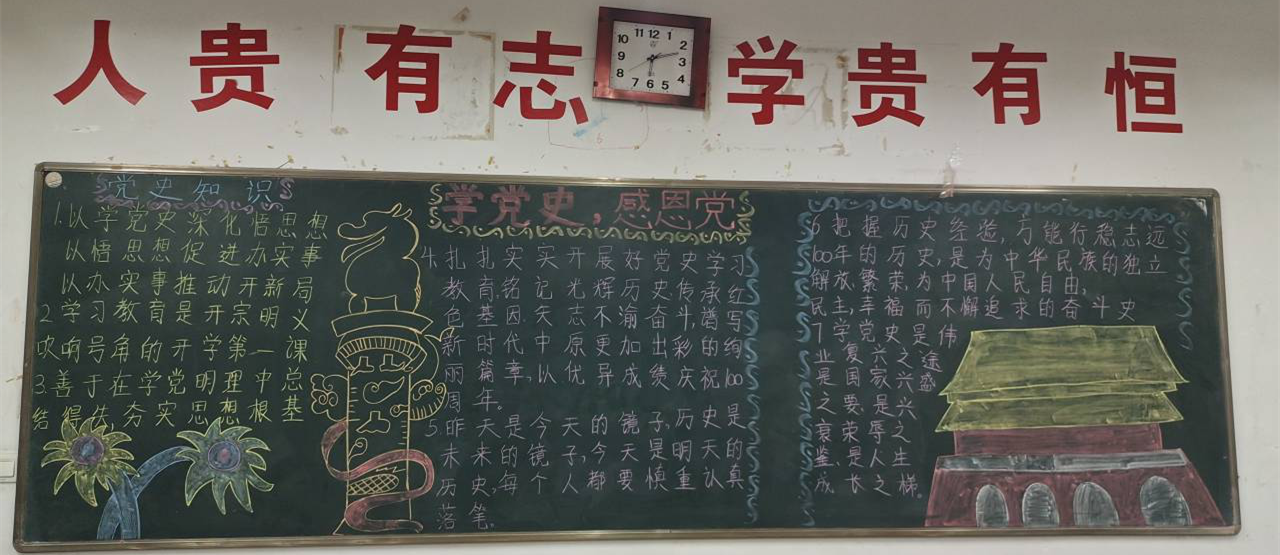 人贵有志 学贵有恒
11 12 1
10 2
9 3
8 4
7 6 5
党史知识
1.以学党史深化悟思想
以悟思想促进办实事
以办实事推动开新局
2.学习教育是开宗明义
吹响号角的开学第一课
3.善于在学党明理中总
结得估,夯实思想根基
学党史,感恩党
4.扎扎实实开展好党史学习
教育,铭记光辉历史传承红
色基因矢志不渝奋斗,谱写
新时代中原更加出彩的绚
丽篇章,以优异成绩庆祝100
周年。
5.昨天是今天的镜子,历史是
未来的镜子,今天是明天的
历史,每个人都要慎重认真
落笔。
6把握历史经验,方能行稳志远
100年的历史,是为中华民族的独立
解放,繁荣,为中国人民自由,
民主,幸福而不懈追求的奋斗史
7.学党史是伟
业复兴之途
是国家兴盛
之要,是兴
衰荣辱之
鉴,是人生
成长之梯。